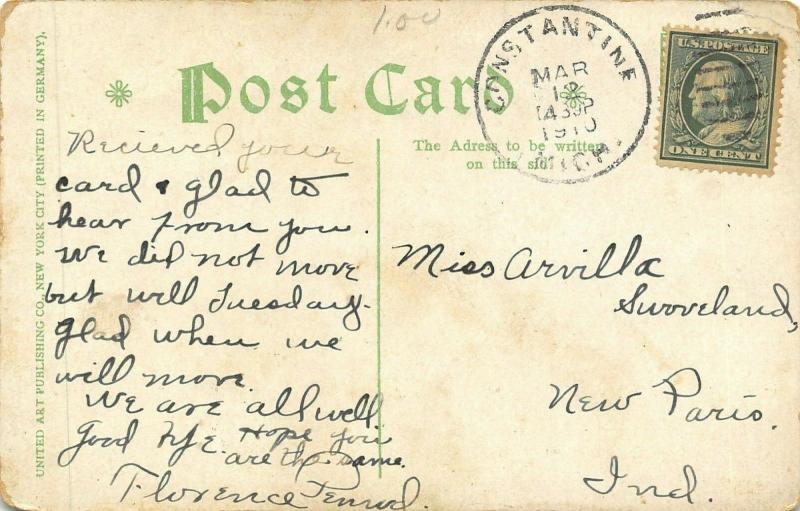 1.00
CONSTANTINE
MAR
12
430P
1910
MICH.
U.S. POSTAGE
ONE CENT
Post Card
The Adress to be written
on this side
UNITED ART PUBLISHING CO., NEW YORK CITY (PRINTED IN GERMANY).
Recieved your
card & glad to
hear from you.
We did not move
but will Tuesday.
Glad when we
will move.
We are all well.
Good bye. Hope you
are the same.
Florence Penrod.
Miss Arvilla
Swoveland,
New Paris.
Ind.